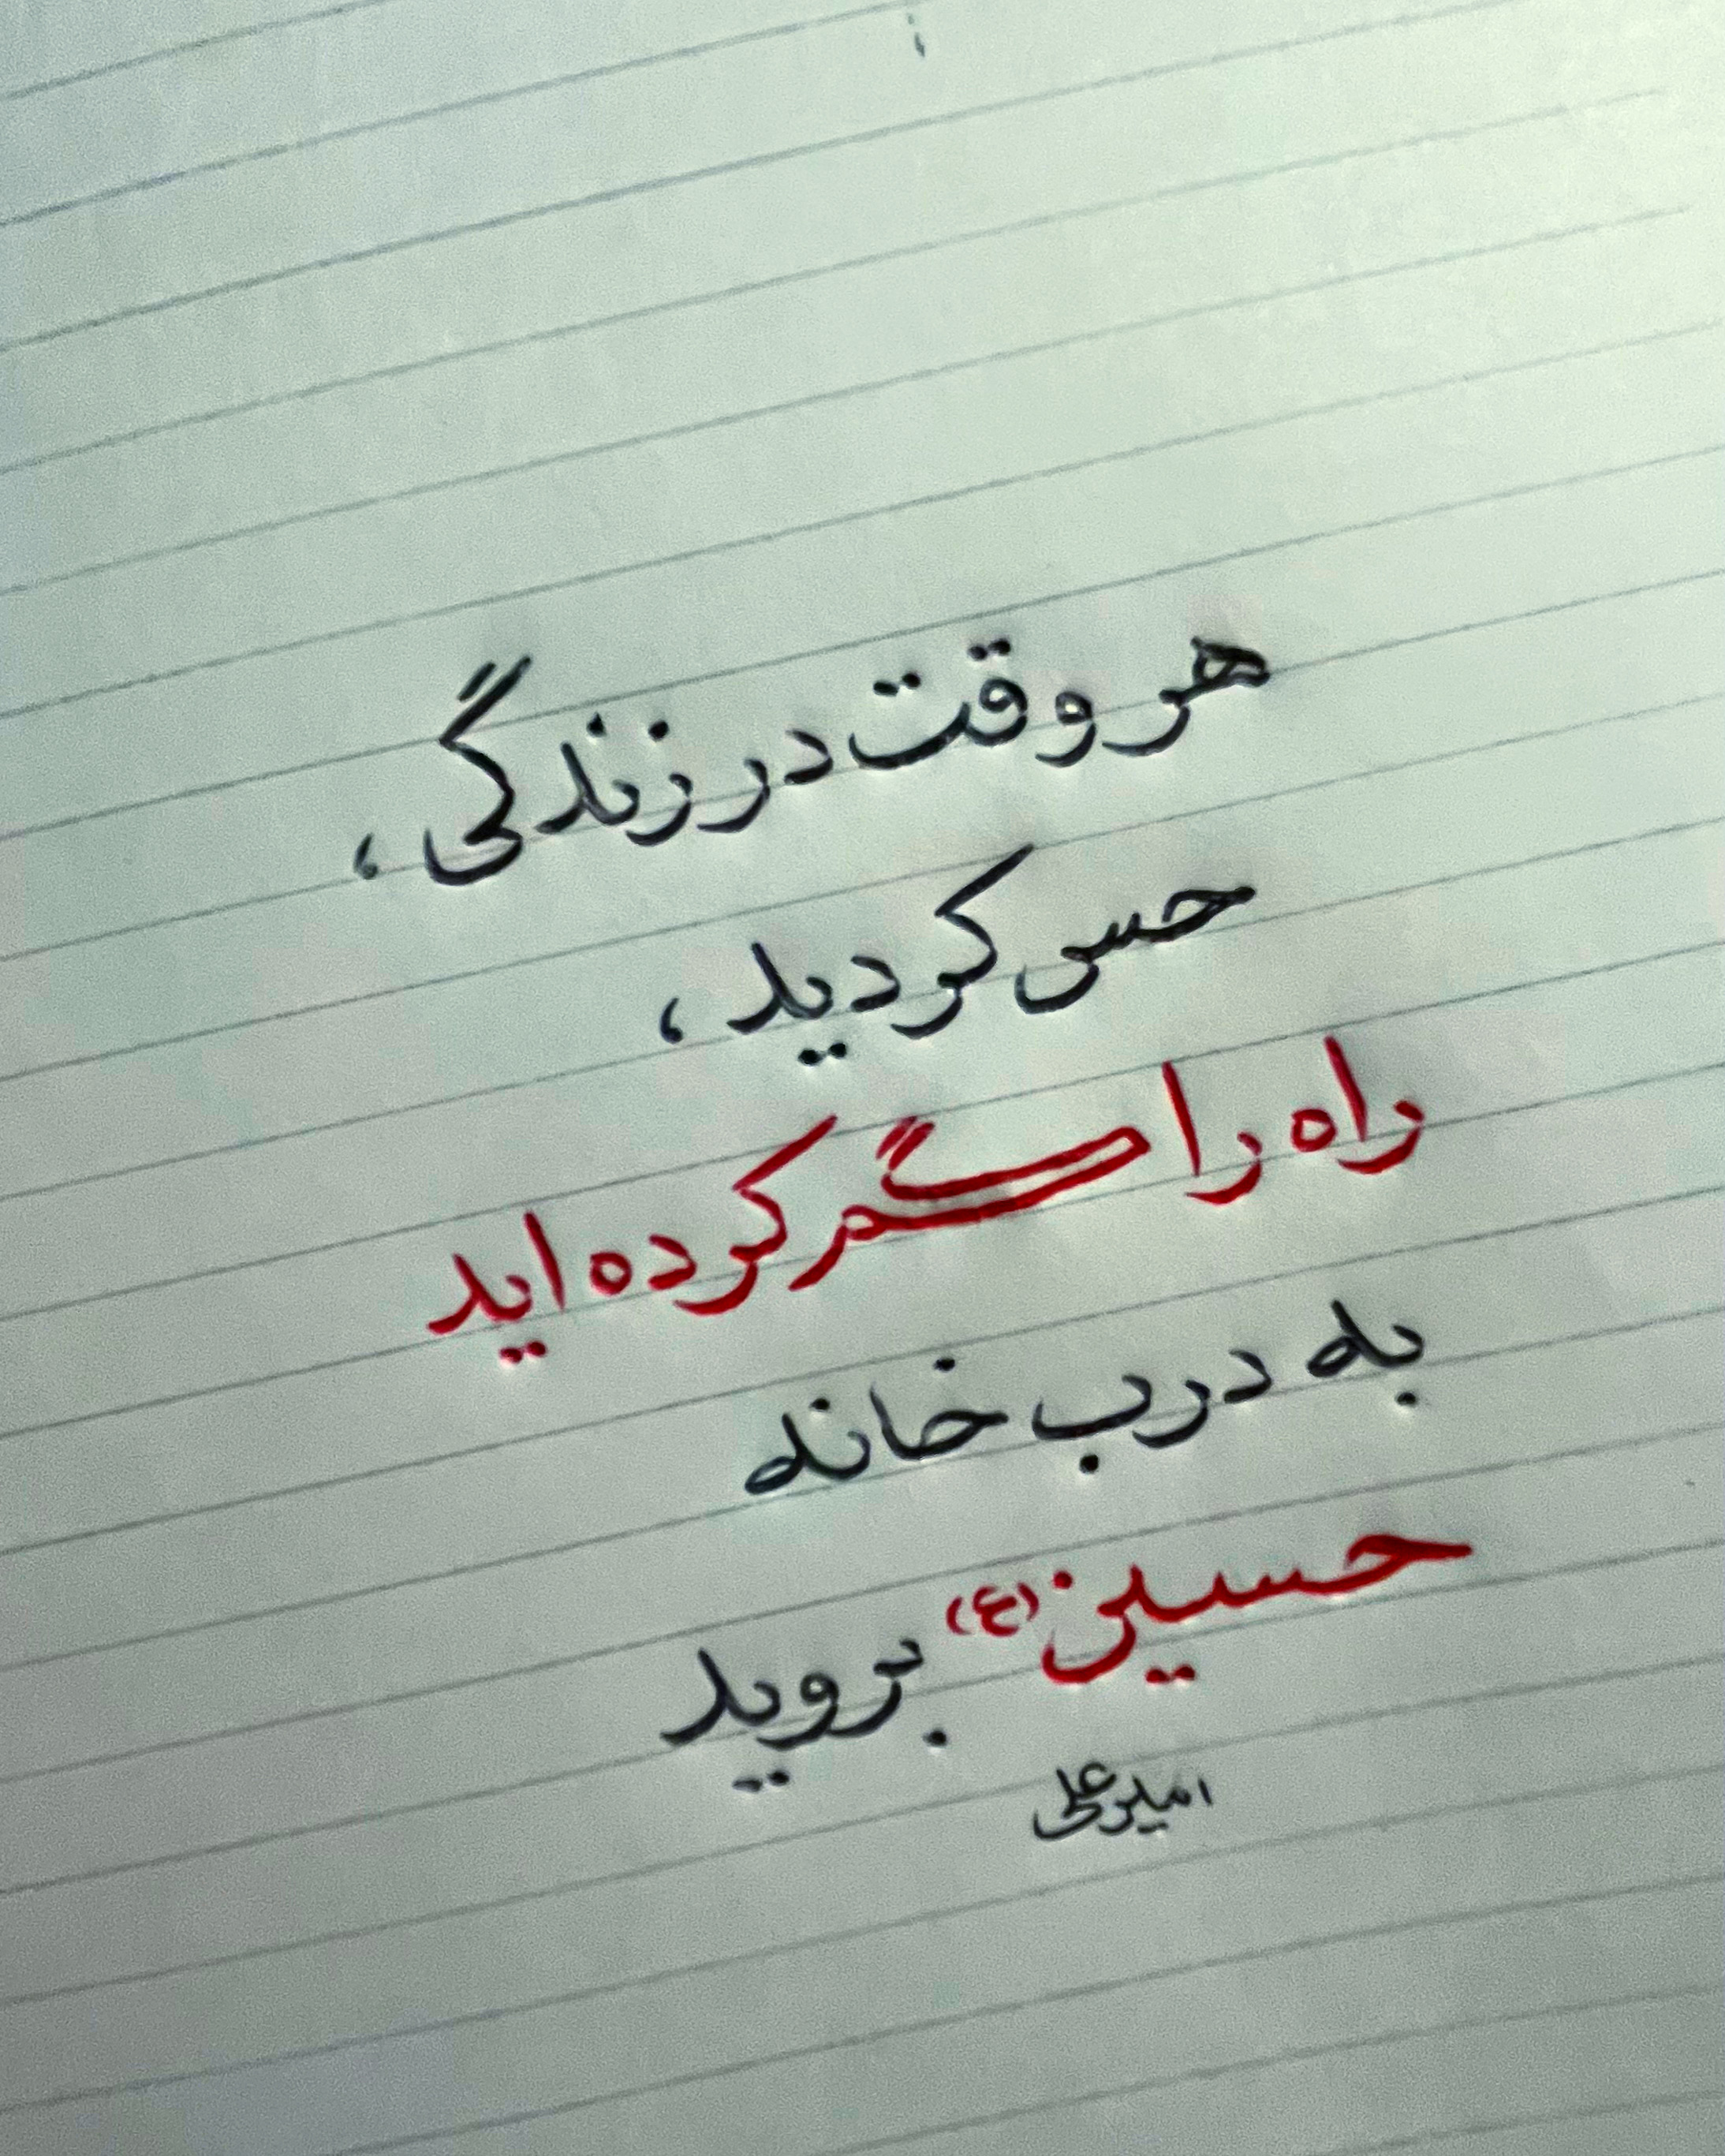 هر وقت در زندگی ،
حس کردید ،
راه را گم کرده اید
به درب خانه
حسین (ع) بروید
امیرعلی